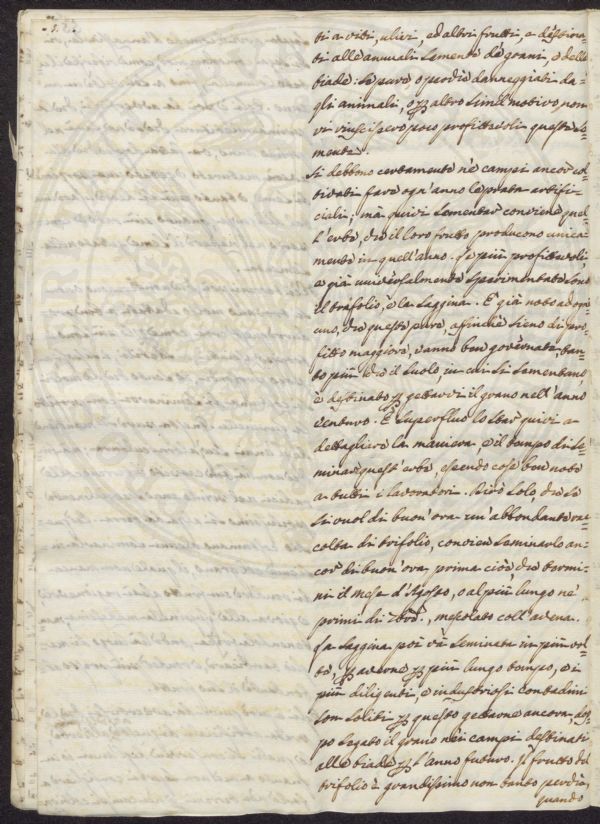 ti a viti, ulivi, ed altri frutti, e destina-
ti alle annuali sementi de' grani, e delle
biade: se pure o perchè danneggiati da-
gli animali, o p altro simil motivo, non
vi riuscissero poco profittevoli queste se-
mente.
Si debbono certamente ne' campi ancor col-
tivati fare ogn'anno le prata artifi-
ciali; mà quivi sementar conviene quel-
l'erbe, che il loro frutto producono unica-
mente in quell'anno. Le più profittevoli
e già universalmente sperimentate sono
il trifolio, e la saggina. È già noto ad ogn'
uno, che queste pure, affinchè sieno di pro-
fitto maggiore, vanno ben governate, tan-
to più che il suolo, in cui si sementano,
è destinato p gettarvi il grano nell'anno
venturo. È superfluo lo star quivi a
dettagliare la maniera e il tempo di se-
minar quest'erbe, essendo cose ben note
a tutti i lavoratori. Dirò solo, che se
si vuol di buon'ora un'abbondante rac-
colta di trifolio, convien seminarlo an-
cor di buon'ora, prima cioè che termi-
ni il mese d'Agosto, o al più lungo ne'
primi di 7bre., mescolato coll'avena.
La saggina poi và seminata in più vol-
te, p averne p più lungo tempo, e i
più diligenti, e industriosi contadini
son soliti p questo gettarne ancora, do-
po segato il grano nei campi destinati
alle biade p l'anno futuro. Il frutto del
trifolio è grandissimo non tanto perchè,
quando